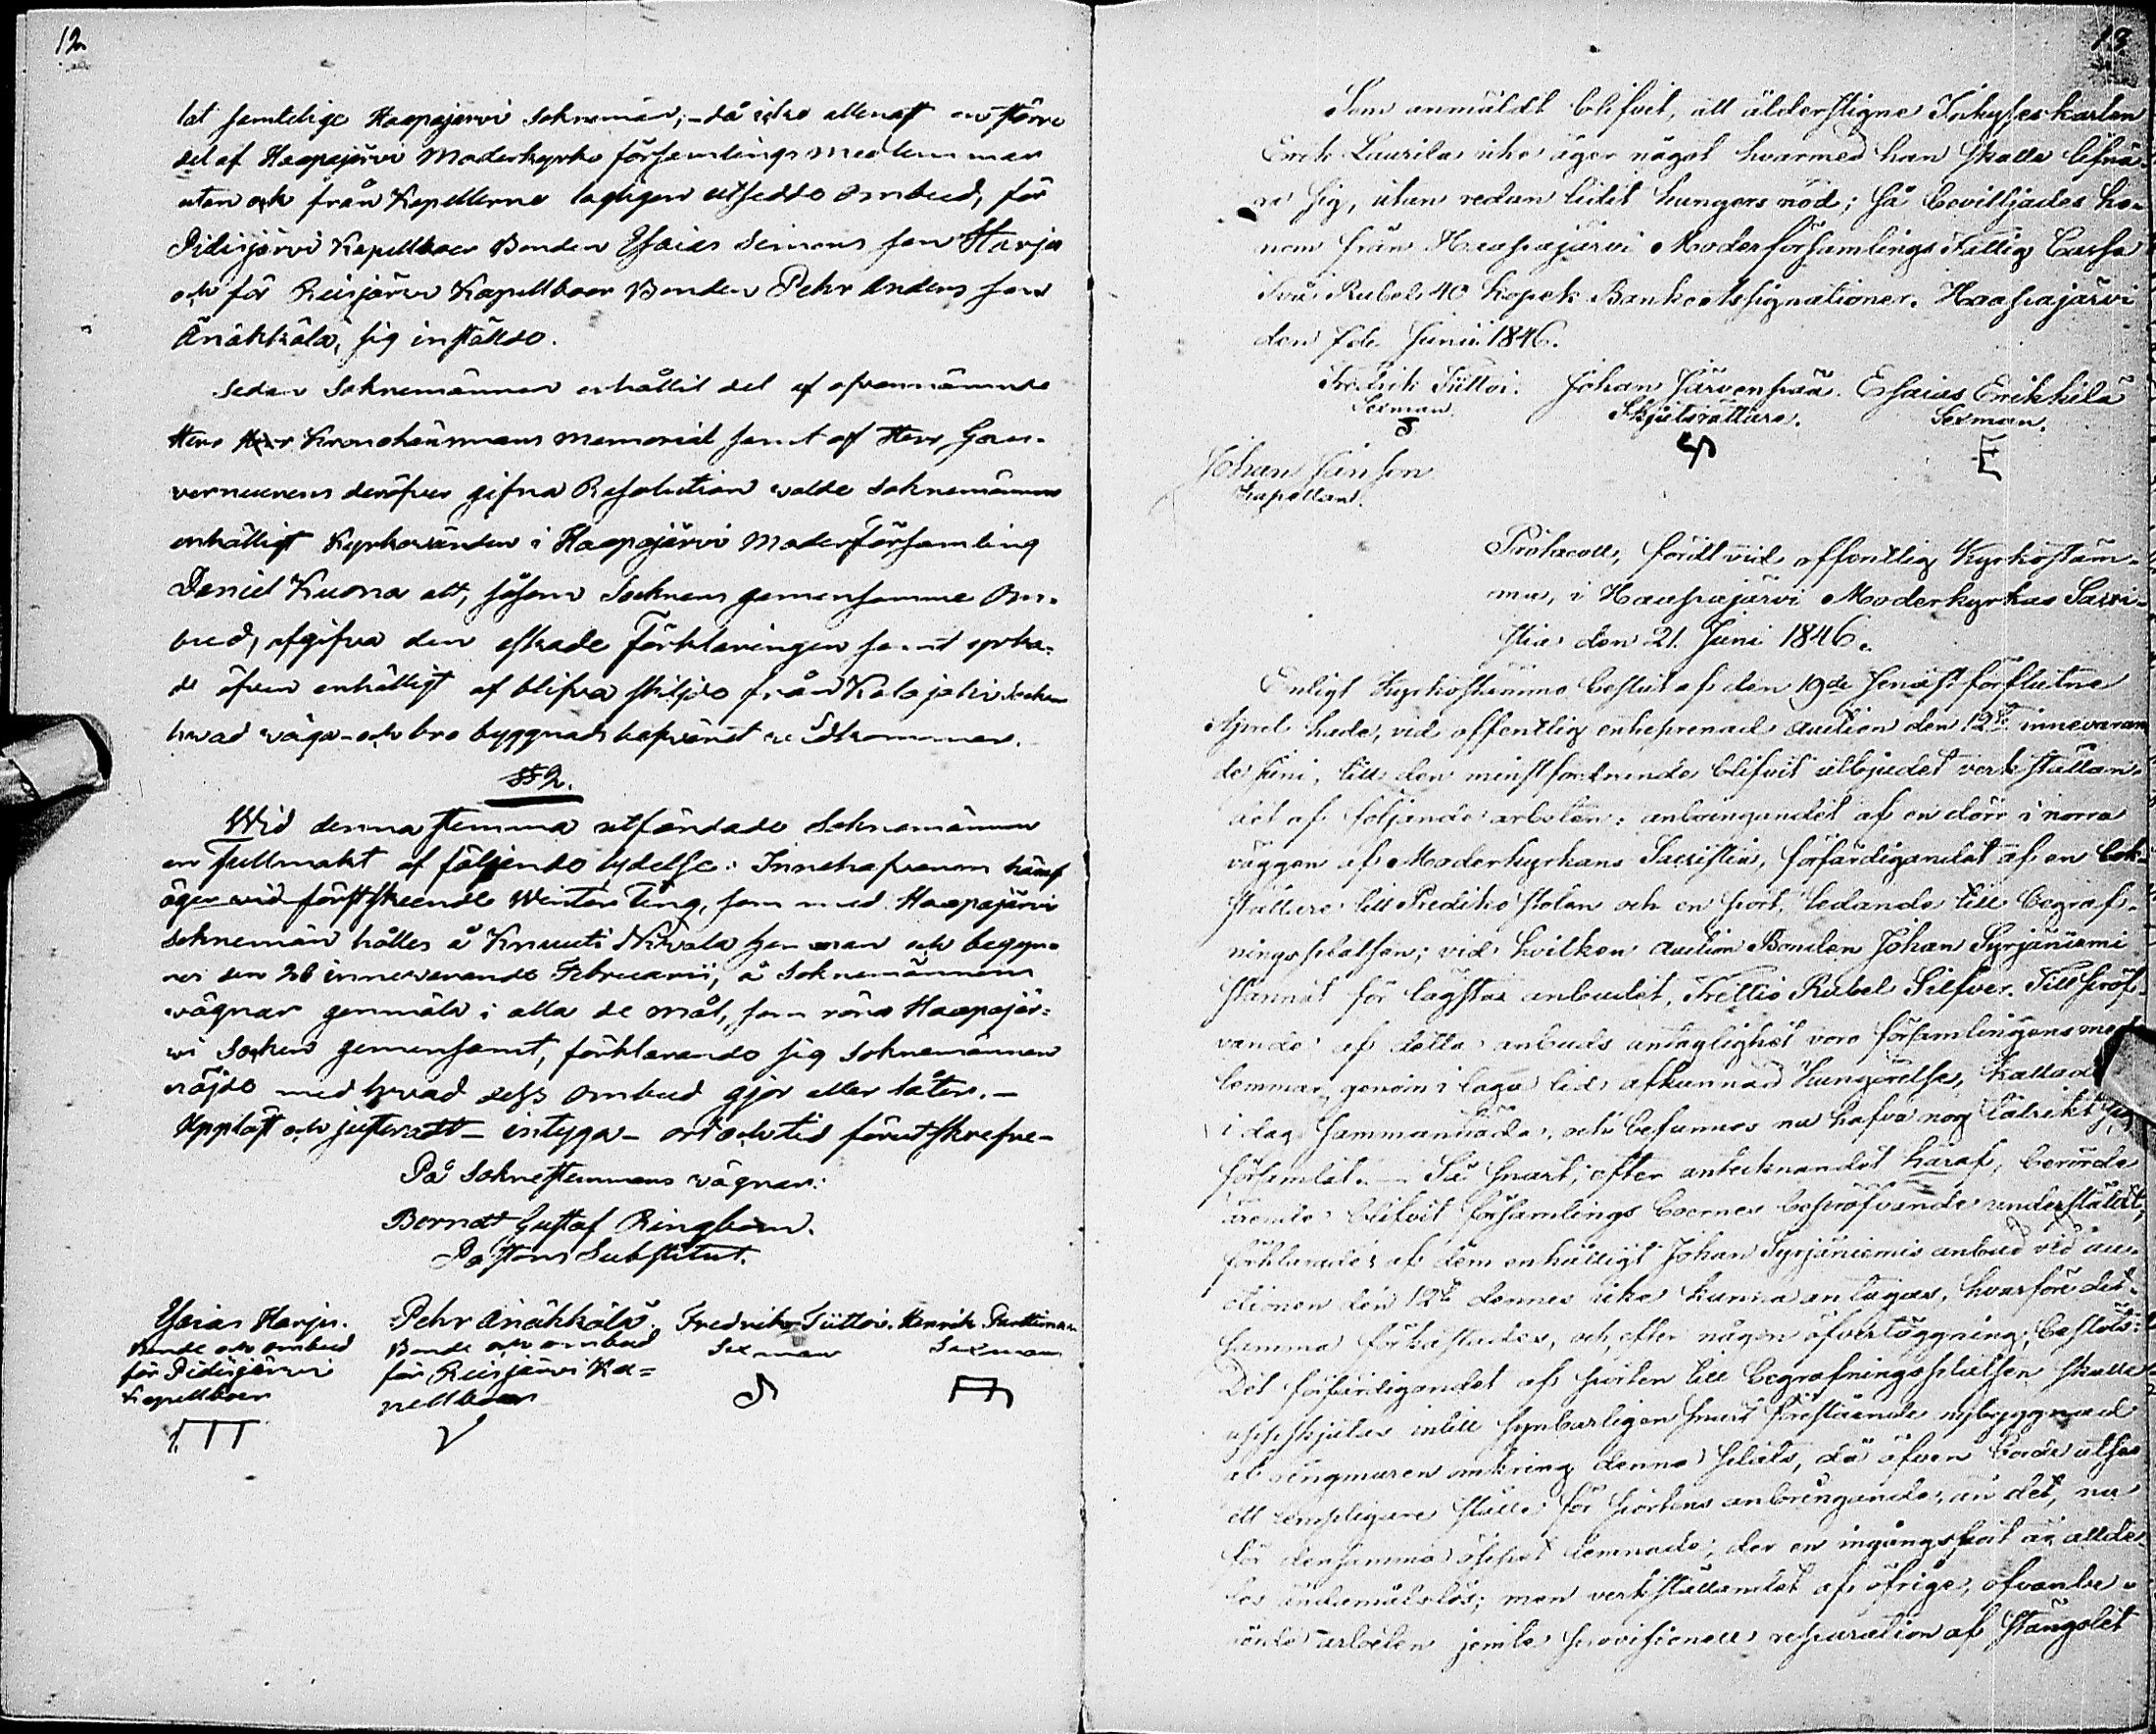 12.
lat samtelige Haapajerwi Soknemän; - då icke allenast en större
del af Haapajärwi Moderkyrko församlings medlemmar
utan och från Kapellerne lagligen utsedde Ombud, för
Pidisjärwi Kapellboer Bonden Esaias Simons son Harja
och för Reisjärwi Kapellboer Bonden Pehr Anders son
Änäkkälä, sig instälde.
Sedan Soknemännen erhållit del af ofvannämnde
Herr Kronolänsmans memorial samt af Herr Gou-
verneurens deröfver gifna Resolution valde Soknemännen
enhälligt Kyrkovärden i Haapajärwi Moderförsamling
Daniel Kuona att, såsom Socknens gemensamme Om-
bud, afgifva den äskade Förklaringen samt yrka-
de äfven enhälligt af blifva skiljde från Kalajoki Socken
hvad väga- och bro byggnads
§ 2.
Wid denna stemma utfärdade Soknemännen
en Fullmakt af följande lydelse: Innehafvaren häraf
äger vid förstskeende Winter Ting, som med Haapajärwi
soknemän hålles å Knuuti Niwala hemman och begyn-
nes den 26 innevarande Februarii, å Soknemännens
vägnar genmäla i alla de mål, som röra Haapajär-
wi Socken gemensamt, förklarande sig Soknemännen
nöjde med hvad dess Ombud gjör eller låter. -
Uppläst och justeradt - intyga - ort och tid förutskrefne -
På Soknestemmans vägnar:
Berndt Gustaf Ringbom.
Pastors Substitut.
Esaias Harju. Pehr Änäkkälä. Fredrik Tiittoi. Henrik
Bonde och ombud Bonde och ombud Sexman Sexman
för Pidisjärwi för Reisjärwi Ka-
Kapellboer pellboer
13
Som anmäldt blifvit, att ålderstigne Inhyseskarlen
Erik Laurila icke äger något hvarmed han skulle lifnä-
ra sig, utan redan lidit hungers nöd; så bevilljades ho-
nom från Haapajärwi Moderförsamlings Fattig Cassa
två Rubel 40 Kopek Banko assignationer. Haapajärwi
den 7de Junii 1846.
Fredrik Tiittoi. Johan Järvenpää. Esaias Erikkilä
Sexman. Skjutsrättare. Sexman.
Johan Janson
Kapellan.
Protocoll, fördt vid offentlig Kyrkostäm-
ma, i Haapajärwi Moderkyrkas Sacri-
stia den 21. Juni 1846.
Enligt Kyrkostämmo beslut af den 19de senast förflutne
April hade, vid offentlig entreprenad auction den 12te innevaran
de Juni, till den minstfordrande blifvit utbjudet verkställan-
det af följande arbeten: anbringandet af en dörr i norra
väggen af Moderkyrkans Sacristia, förfärdigandet af en bok-
ställare till Prediko stolen och en port, ledande till begraf-
ningsplatsen; vid hvilken auction Bonden Johan Syrjäniemi
stannat för lägsta anbudet, Trettio Rubel Silfver. Till pröf-
vande af detta anbuds antaglighet voro församlingens med
lemmar, genom i laga tid afkunnad Kungörelse, kallade
i dag sammanträda, och befunnos nu hafva nog talrikt sig
församlat. - Så snart, efter antecknandet häraf, berörde
ärende blifvit församlings boernes bepröfvande underställdt,
förklarades af dem enhälligt Johan Syrjäniemis anbud vid auc-
tionen den 12te dennes icke kunna antagas, hvarföre det-
samma förkastades, och, efter någon öfverläggning, beslöts:
Det förfärdigandet af porten till begrafningsplatsen skulle
uppskjutas intill synbarligen snart förestående nybyggnad
af ringmuren omkring denna plats, då äfven borde utses
ett lämpligare ställe för portens anbringande, än det, nu
för densamma öppet lemnade; der en ingångsport är allde-
les ändamålslös; men verkställandet af öfrige, ofvanbe-
rörde arbeten jemte provisionell reparation af stängslet